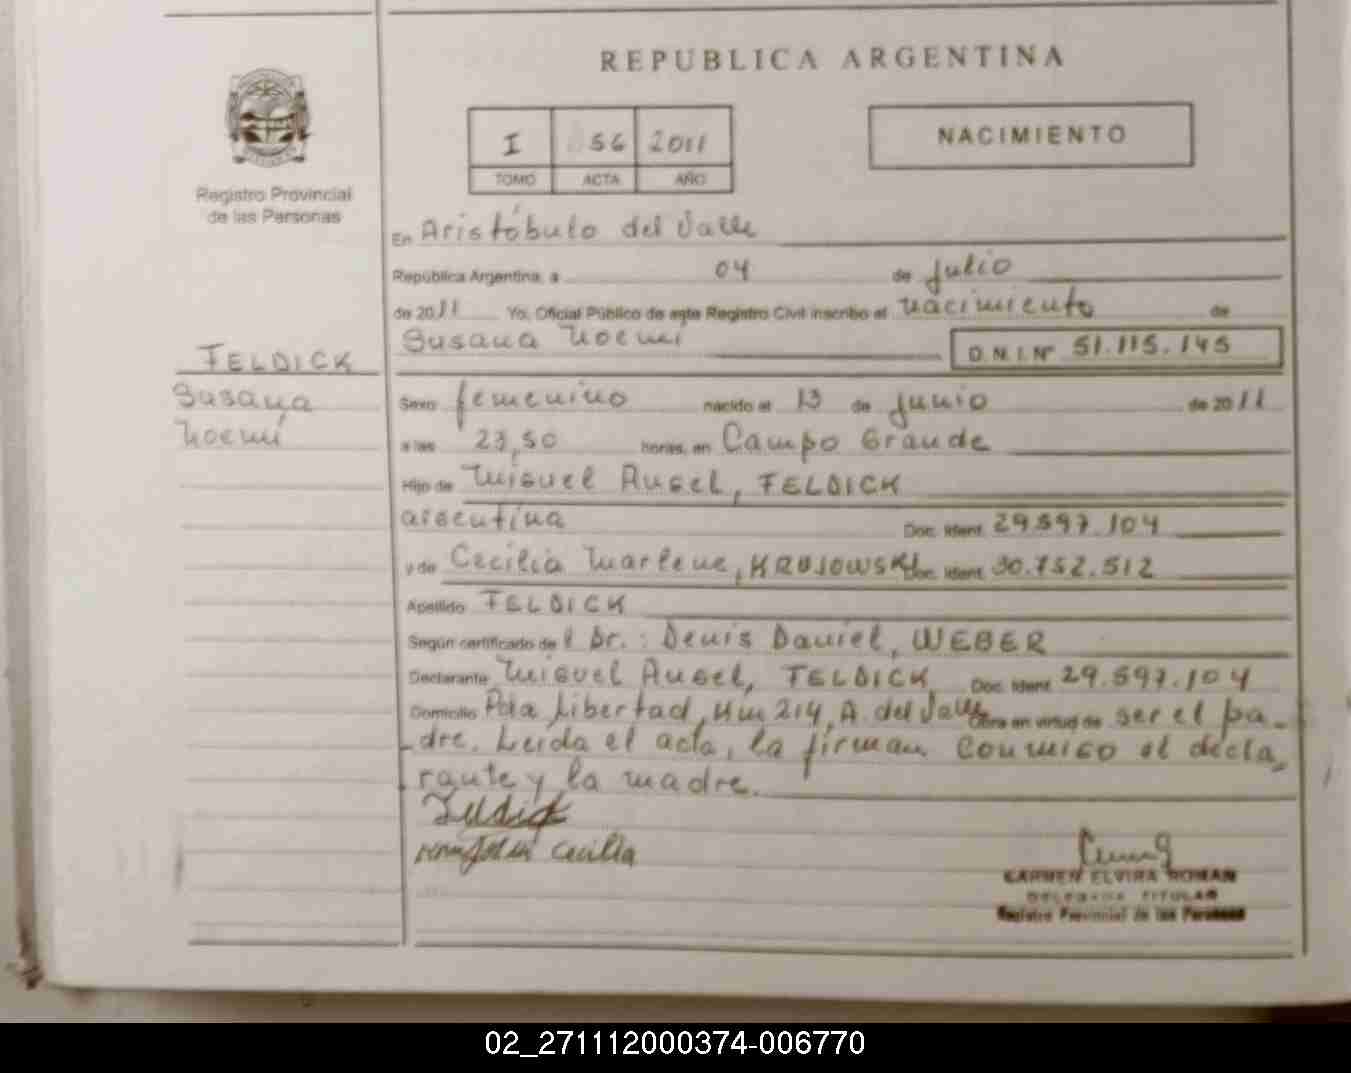 REPUBLICA ARGENTINA
I 56 2011
TOMO ACTA AÑO
NACIMIENTO
Registro Provincial
de las Personas
En Aristóbulo del Valle
República Argentina, a 04 de Julio
de 2011 Yo, Oficial Público de este Registro Civil inscribo el nacimiento de
Susana Noemí D.N.I. Nº 51.115.145
FELDICK
Susana
Noemí
Sexo femenino nacido el 13 de junio de 2011
a las 23,50 horas, en Campo Grande
Hijo de Miguel Angel, FELDICK
argentina Doc. Ident. 29.597.104
y de Cecilia Marlene, KRUJOWSKI Doc. Ident. 30.752.512
Apellido FELDICK
Según certificado de l Dr.: Denis Daniel, WEBER
Declarante Miguel Angel, FELDICK Doc. Ident. 29.597.104
Domicilio Pda Libertad, Km 214, A. del Valle Obra en virtud de ser el pa-
dre. Leída el acta, la firman conmigo el decla-
rante y la madre.
Feldick
Cecilia
CARMEN ELVIRA ROMAN
DELEGADA TITULAR
Registro Provincial de las Personas
02_271112000374-006770